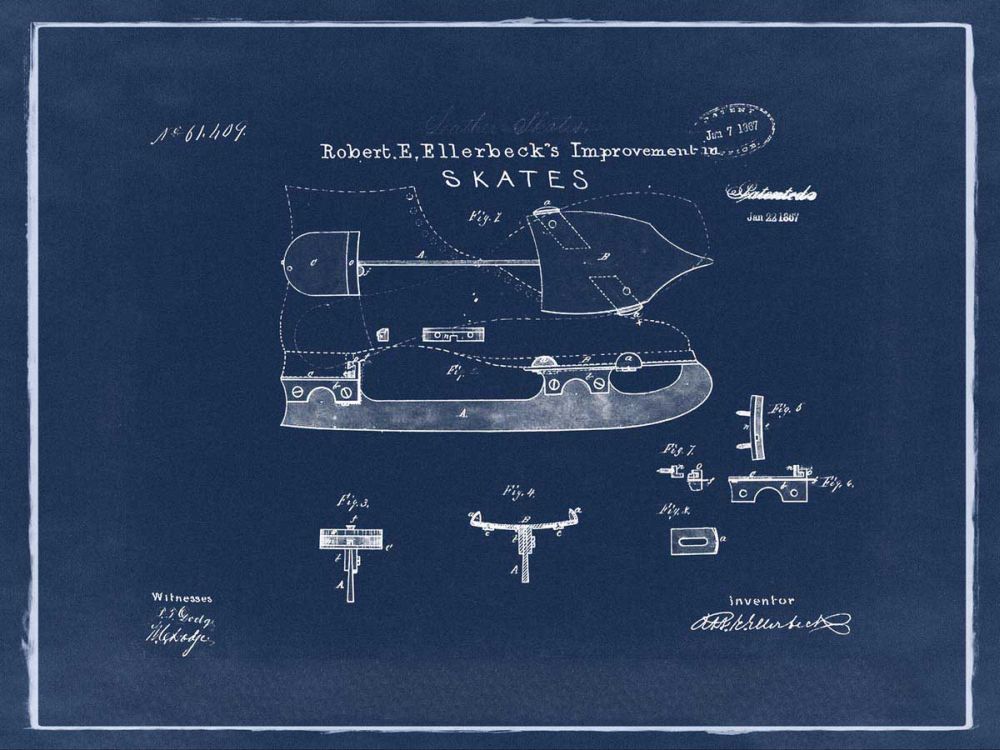 No 61,409.
Robert.E,Ellerbeck's Improvement in
SKATES
PATENT
Jan 7 1867
OFFICE
Patented
Jan 22 1867
Fig. 1
a
C
o
A
B
f
a
n
Fig.
o
a
p
a
t
t
A.
Fig. 5
n
Fig. 7.
n
o
e
t
Fig. 6.
Fig. 3.
f
e
t
A
Fig. 4.
a
B
a
e
t
e
A
Fig. 8.
a
Witnesses
inventor